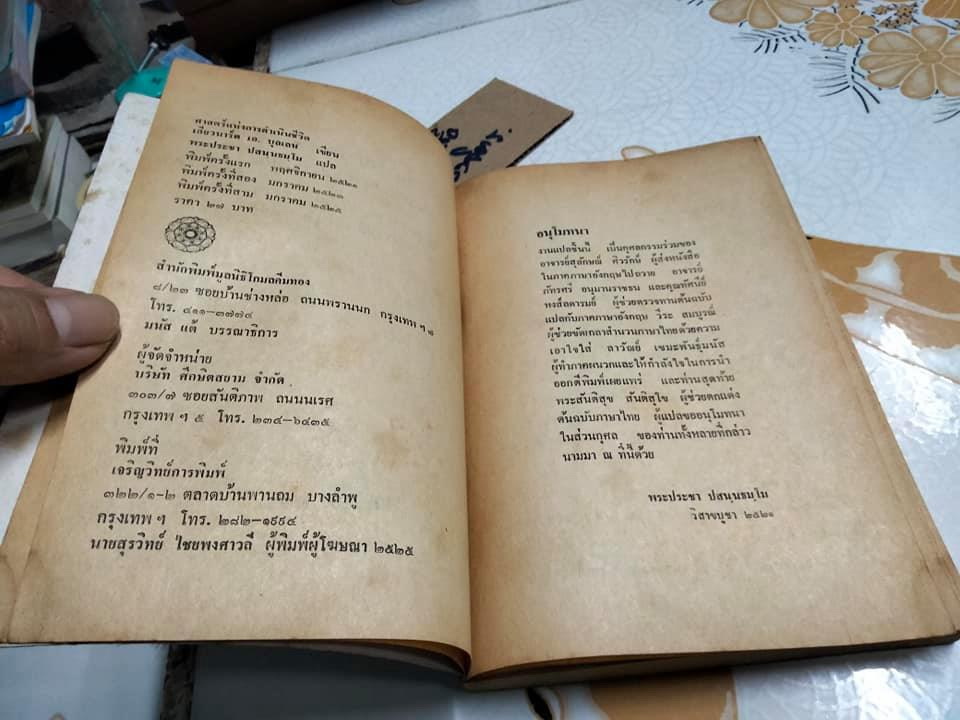 ศาสตร์แห่งการดำเนินชีวิต
เลียวนาร์ด เอ. บุลเลน เขียน
พระประชา ปสนฺนธมฺโม แปล
พิมพ์ครั้งแรก พฤศจิกายน ๒๕๒๑
พิมพ์ครั้งที่สอง มกราคม ๒๕๒๓
พิมพ์ครั้งที่สาม มกราคม ๒๕๒๕
ราคา ๒๗ บาท
สำนักพิมพ์มูลนิธิโกมลคีมทอง
๘/๒๓ ซอยบ้านช่างหล่อ ถนนพรานนก กรุงเทพ ฯ ๘
โทร. ๔๑๑–๓๗๗๔
มนัส แต้ บรรณาธิการ
ผู้จัดจำหน่าย
บริษัท ศึกษิตสยาม จำกัด
๓๐๓/๗ ซอยสันติภาพ ถนนนเรศ
กรุงเทพ ฯ ๕ โทร. ๒๓๔–๖๔๓๕
พิมพ์ที่
เจริญวิทย์การพิมพ์
๓๒๒/๑–๒ ตลาดบ้านพานถม บางลำพู
กรุงเทพ ฯ โทร. ๒๘๒–๑๙๙๔
นายสุรวิทย์ ไชยพงศาวลี ผู้พิมพ์ผู้โฆษณา ๒๕๒๕
อนุโมทนา
งานแปลชิ้นนี้ เป็นกุศลกรรมร่วมของ
อาจารย์สุลักษณ์ ศิวรักษ์ ผู้ส่งหนังสือ
ในภาคภาษาอังกฤษไปถวาย อาจารย์
ภัทรศรี อนุมานราชธน และคุณทัศนีย์
หงส์ลดารมย์ ผู้ช่วยตรวจทานต้นฉบับ
แปลกับภาคภาษาอังกฤษ วีระ สมบูรณ์
ผู้ช่วยขัดเกลาสำนวนภาษาไทยด้วยความ
เอาใจใส่ ลาวัณย์ เขมะพันธุ์มนัส
ผู้ทำภาคผนวกและให้กำลังใจในการนำ
ออกตีพิมพ์เผยแพร่ และท่านสุดท้าย
พระสันติสุข สันติสุโข ผู้ช่วยตกแต่ง
ต้นฉบับภาษาไทย ผู้แปลขออนุโมทนา
ในส่วนกุศล ของท่านทั้งหลายที่กล่าว
นามมา ณ ที่นี้ด้วย
พระประชา ปสนฺนธมฺโม
วิสาขบูชา ๒๕๒๑